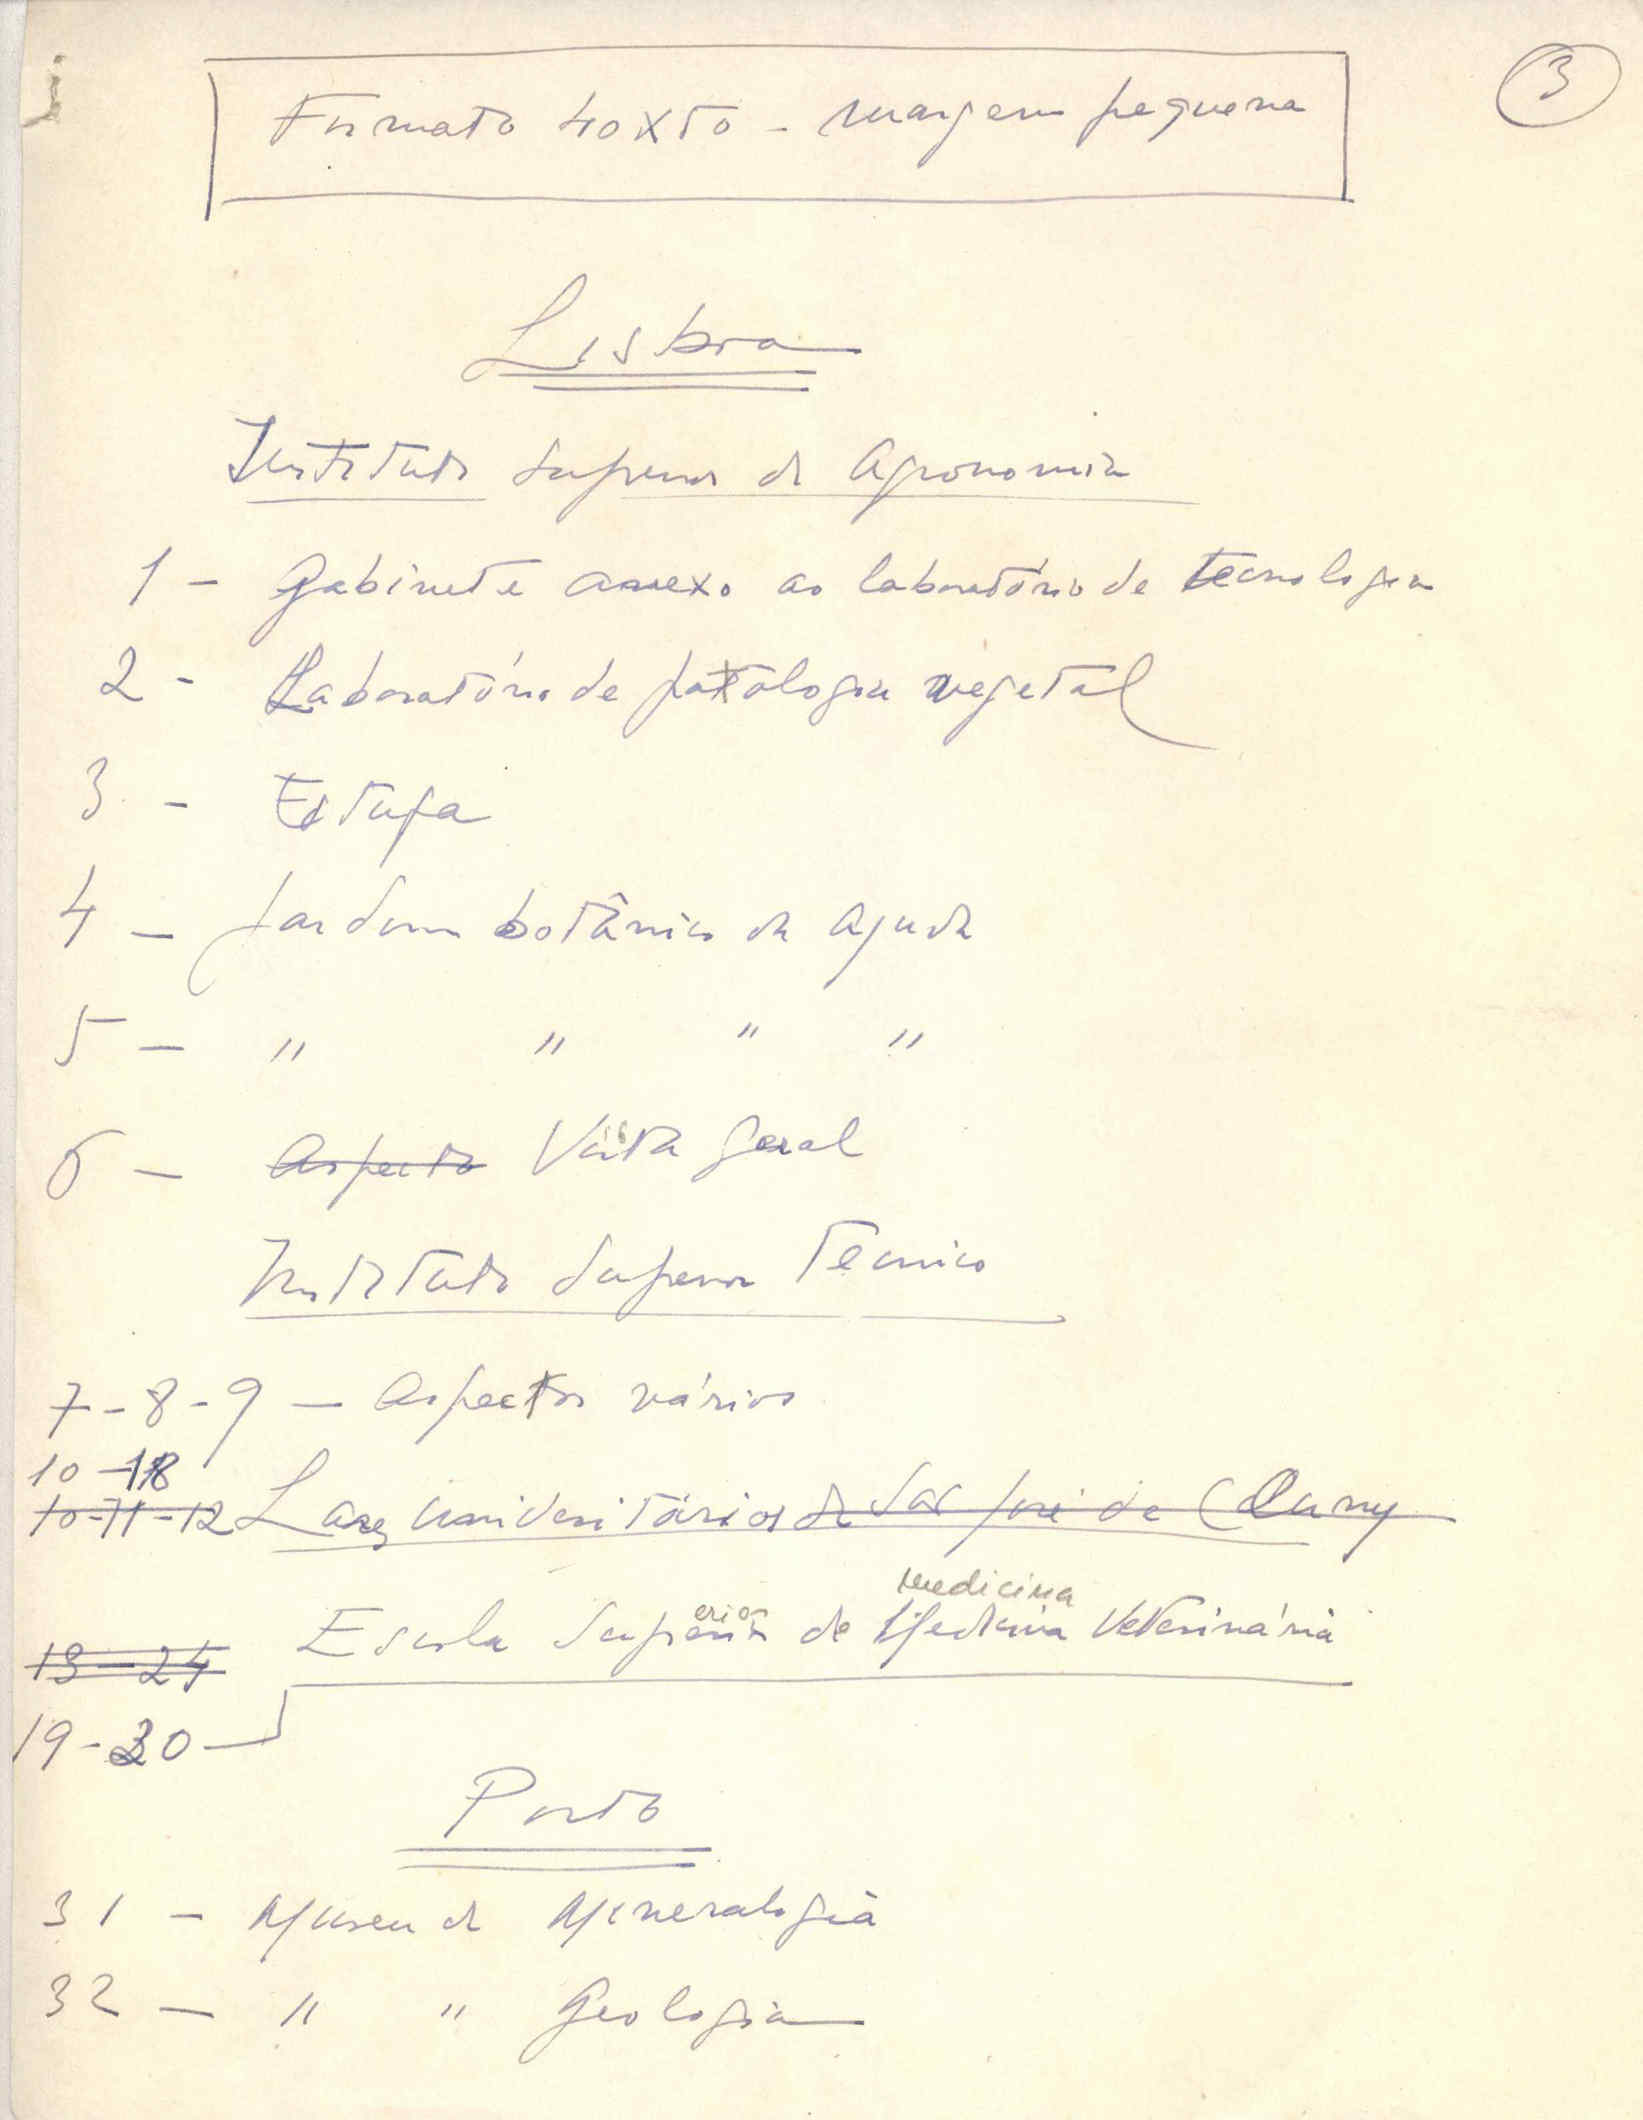 3
Formato 40x50 - margem pequena
Lisboa
Instituto Superior de Agronomia
1 - Gabinete anexo ao laboratório de tecnologia
2 - Laboratório de patologia vegetal
3 - Estufa
4 - Jardim botânico da Ajuda
5 - " " " "
6 - Aspecto Vista geral
Instituto Superior Técnico
7-8-9 - Aspectos vários
10-18
10-11-12 Lares Universitários de São José de Cluny
medicina
Escola Superior de Medicina Veterinária
13-24
19-30
Porto
31 - Museu de Mineralogia
32 - " " Geologia